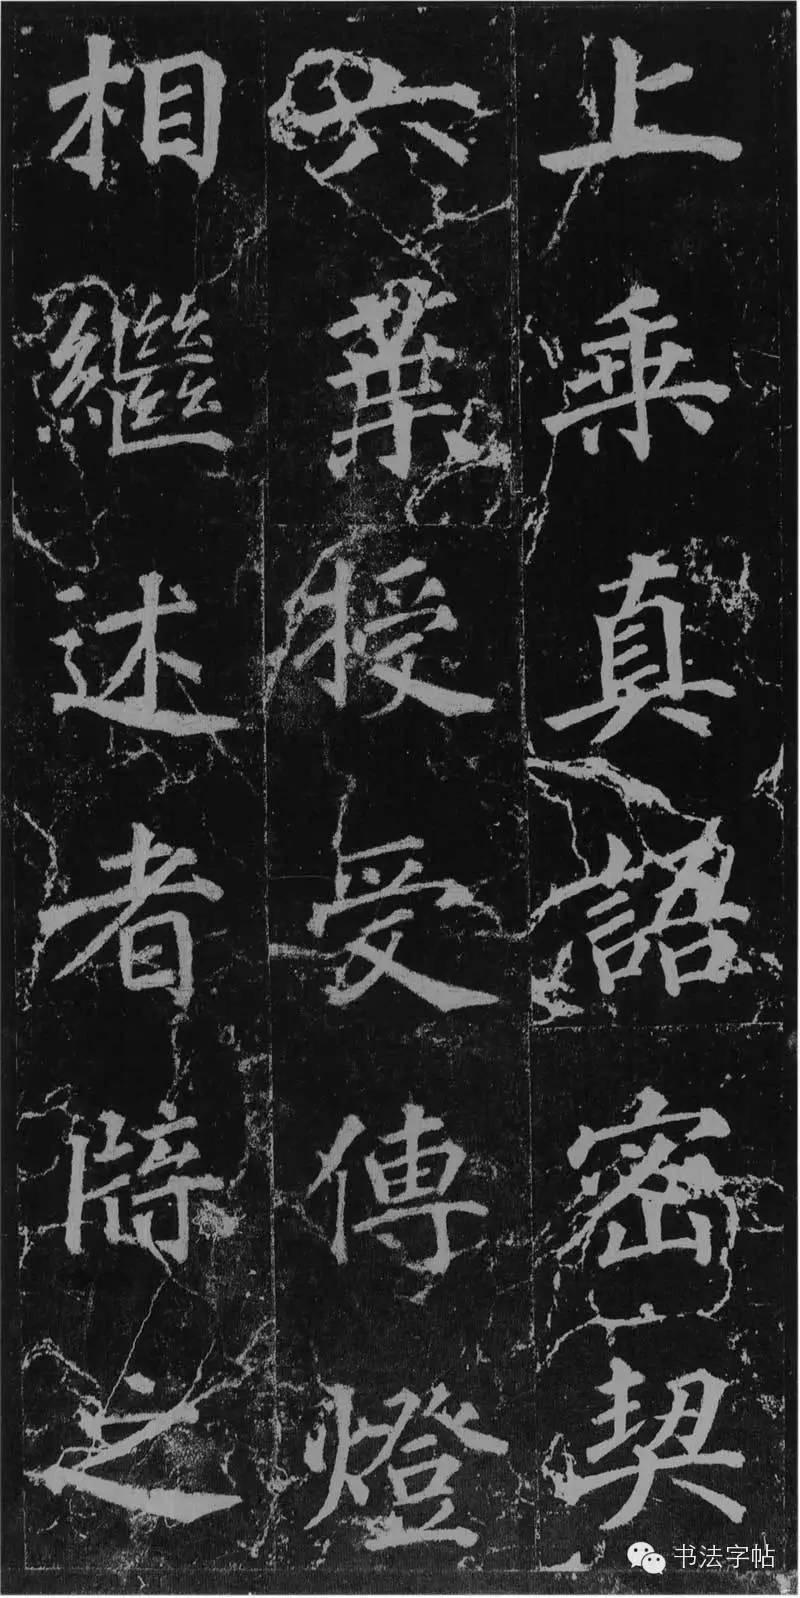 上乘真語密契
六葉授受傳燈
相繼述者辭之
书法字帖